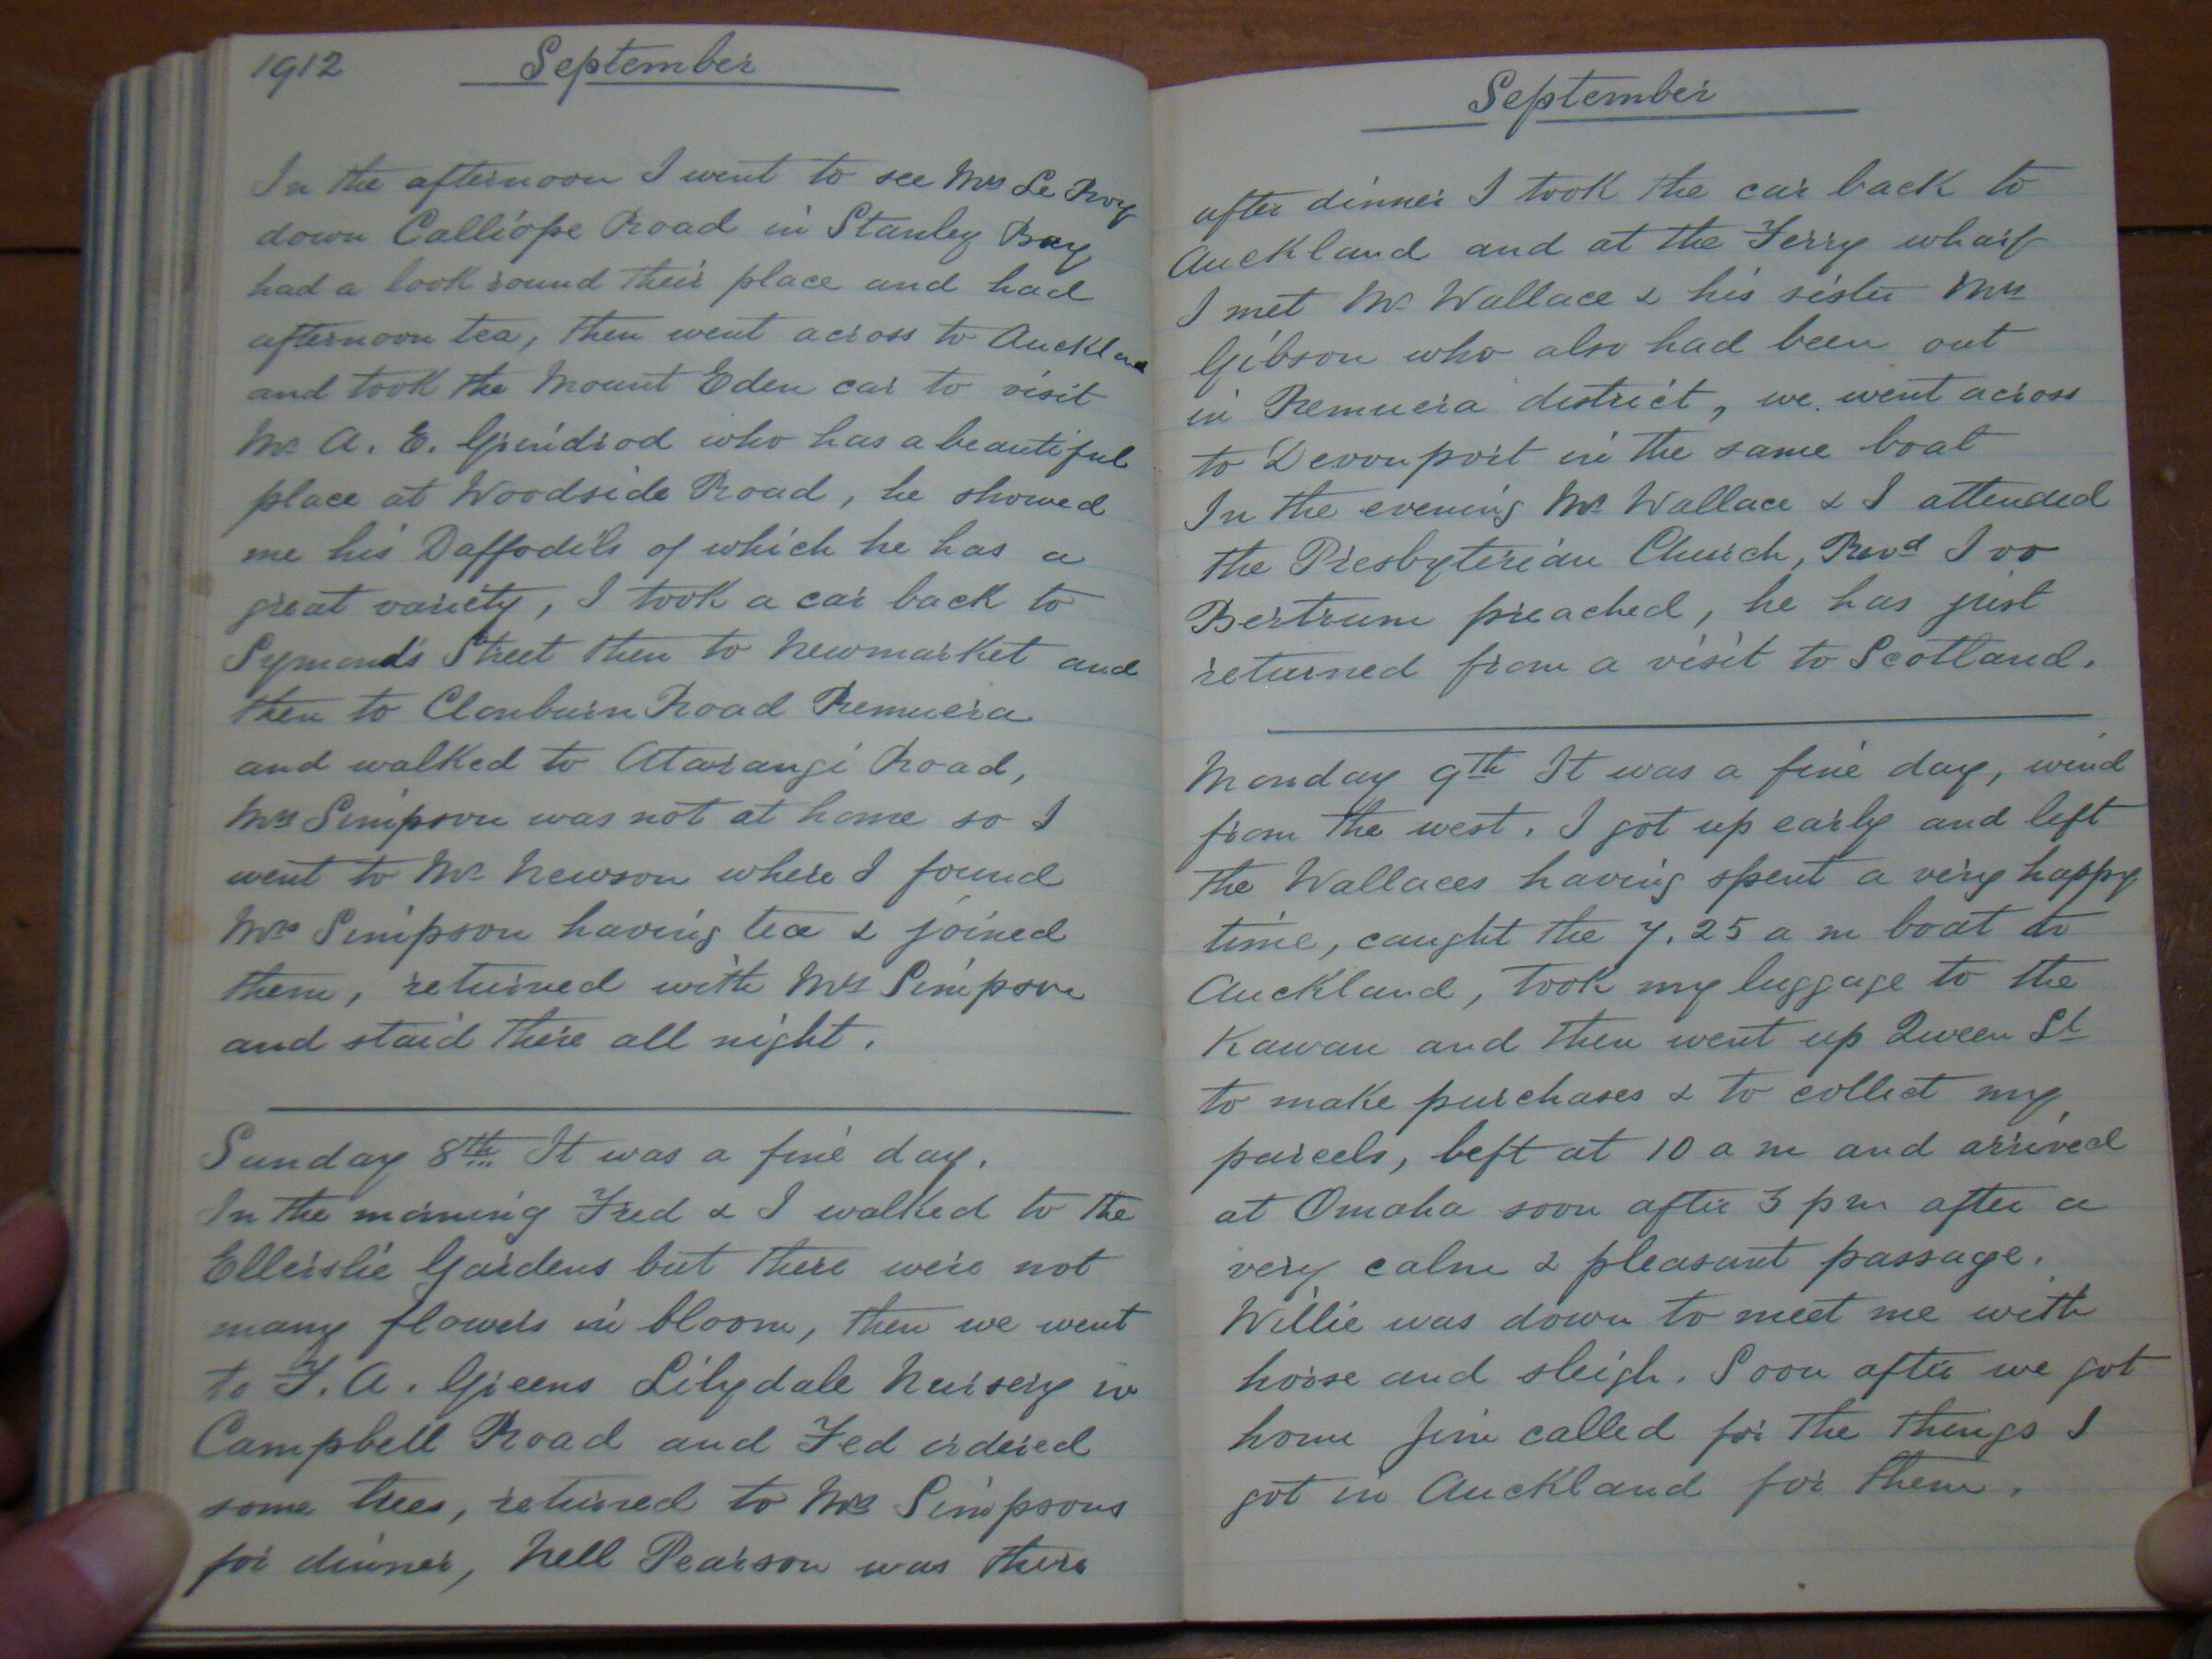 1912 September
In the afternoon I went to see Mrs Le Roy
down Calliope Road in Stanley Bay
had a look round their place and had
afternoon tea, then went across to Auckland
and took the Mount Eden car to visit
Mr A. E. Grindrod who has a beautiful
place at Woodside Road, he showed
me his Daffodils of which he has a
great variety, I took a car back to
Symonds Street then to Newmarket and
then to Clonburn Road Remuera
and walked to Atarangi Road,
Mrs Simpson was not at home so I
went to Mr Newson where I found
Mrs Simpson having tea & joined
them, returned with Mrs Simpson
and staid there all night.
Sunday 8th It was a fine day.
In the morning Fred & I walked to the
Ellerslie Gardens but there were not
many flowers in bloom, then we went
to F. A. Greens Lilydale Nursery in
Campbell Road and Fed ordered
some trees, returned to Mrs Simpsons
for dinner, Nell Pearson was there
September
after dinner I took the car back to
Auckland and at the Ferry wharf
I met Mr Wallace & his sister Mrs
Gibson who also had been out
in Remuera district, we went across
to Devonport in the same boat
In the evening Mr Wallace & I attended
the Presbyterian Church, Revd Ivo
Bertrum preached, he has just
returned from a visit to Scotland.
Monday 9th It was a fine day, wind
from the west. I got up early and left
the Wallaces having spent a very happy
time, caught the 7.25 a m boat to
Auckland, took my luggage to the
Kawau and then went up Queen St
to make purchases & to collect my
parcels, left at 10 a m and arrived
at Omaha soon after 3 pm after a
very calm & pleasant passage.
Willie was down to meet me with
horse and sleigh. Soon after we got
home Jim called for the things I
got in Auckland for them.